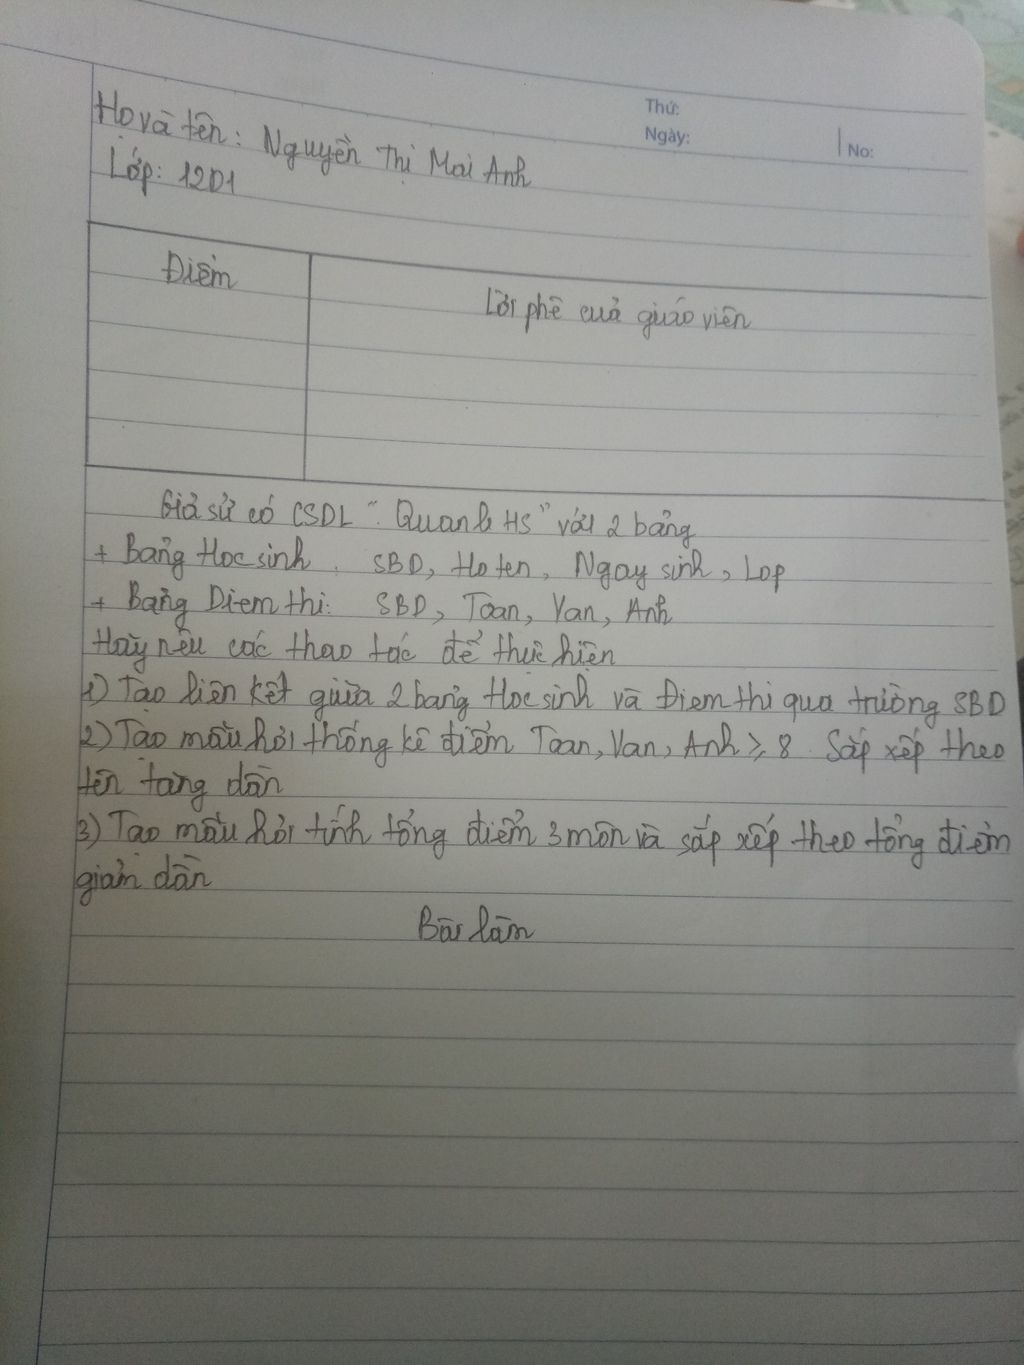 Thứ:
Ngày:
No:
Họ và tên: Nguyễn Thị Mai Anh
Lớp: 12D1
Điểm
Lời phê của giáo viên
Giả sử có CSDL "Quanli HS" với 2 bảng
+ Bảng Hocsinh. SBD, Hoten, Ngaysinh, Lop
+ Bảng Diemthi: SBD, Toan, Van, Anh
Hãy nêu các thao tác để thực hiện
1) Tạo liên kết giữa 2 bảng Hocsinh và Điemthi qua trường SBD
2) Tạo mẫu hỏi thống kê điểm Toan, Van, Anh ≥ 8. Sắp xếp theo
tên tăng dần
3) Tạo mẫu hỏi tính tổng điểm 3 môn và sắp xếp theo tổng điểm
giảm dần
Bài làm